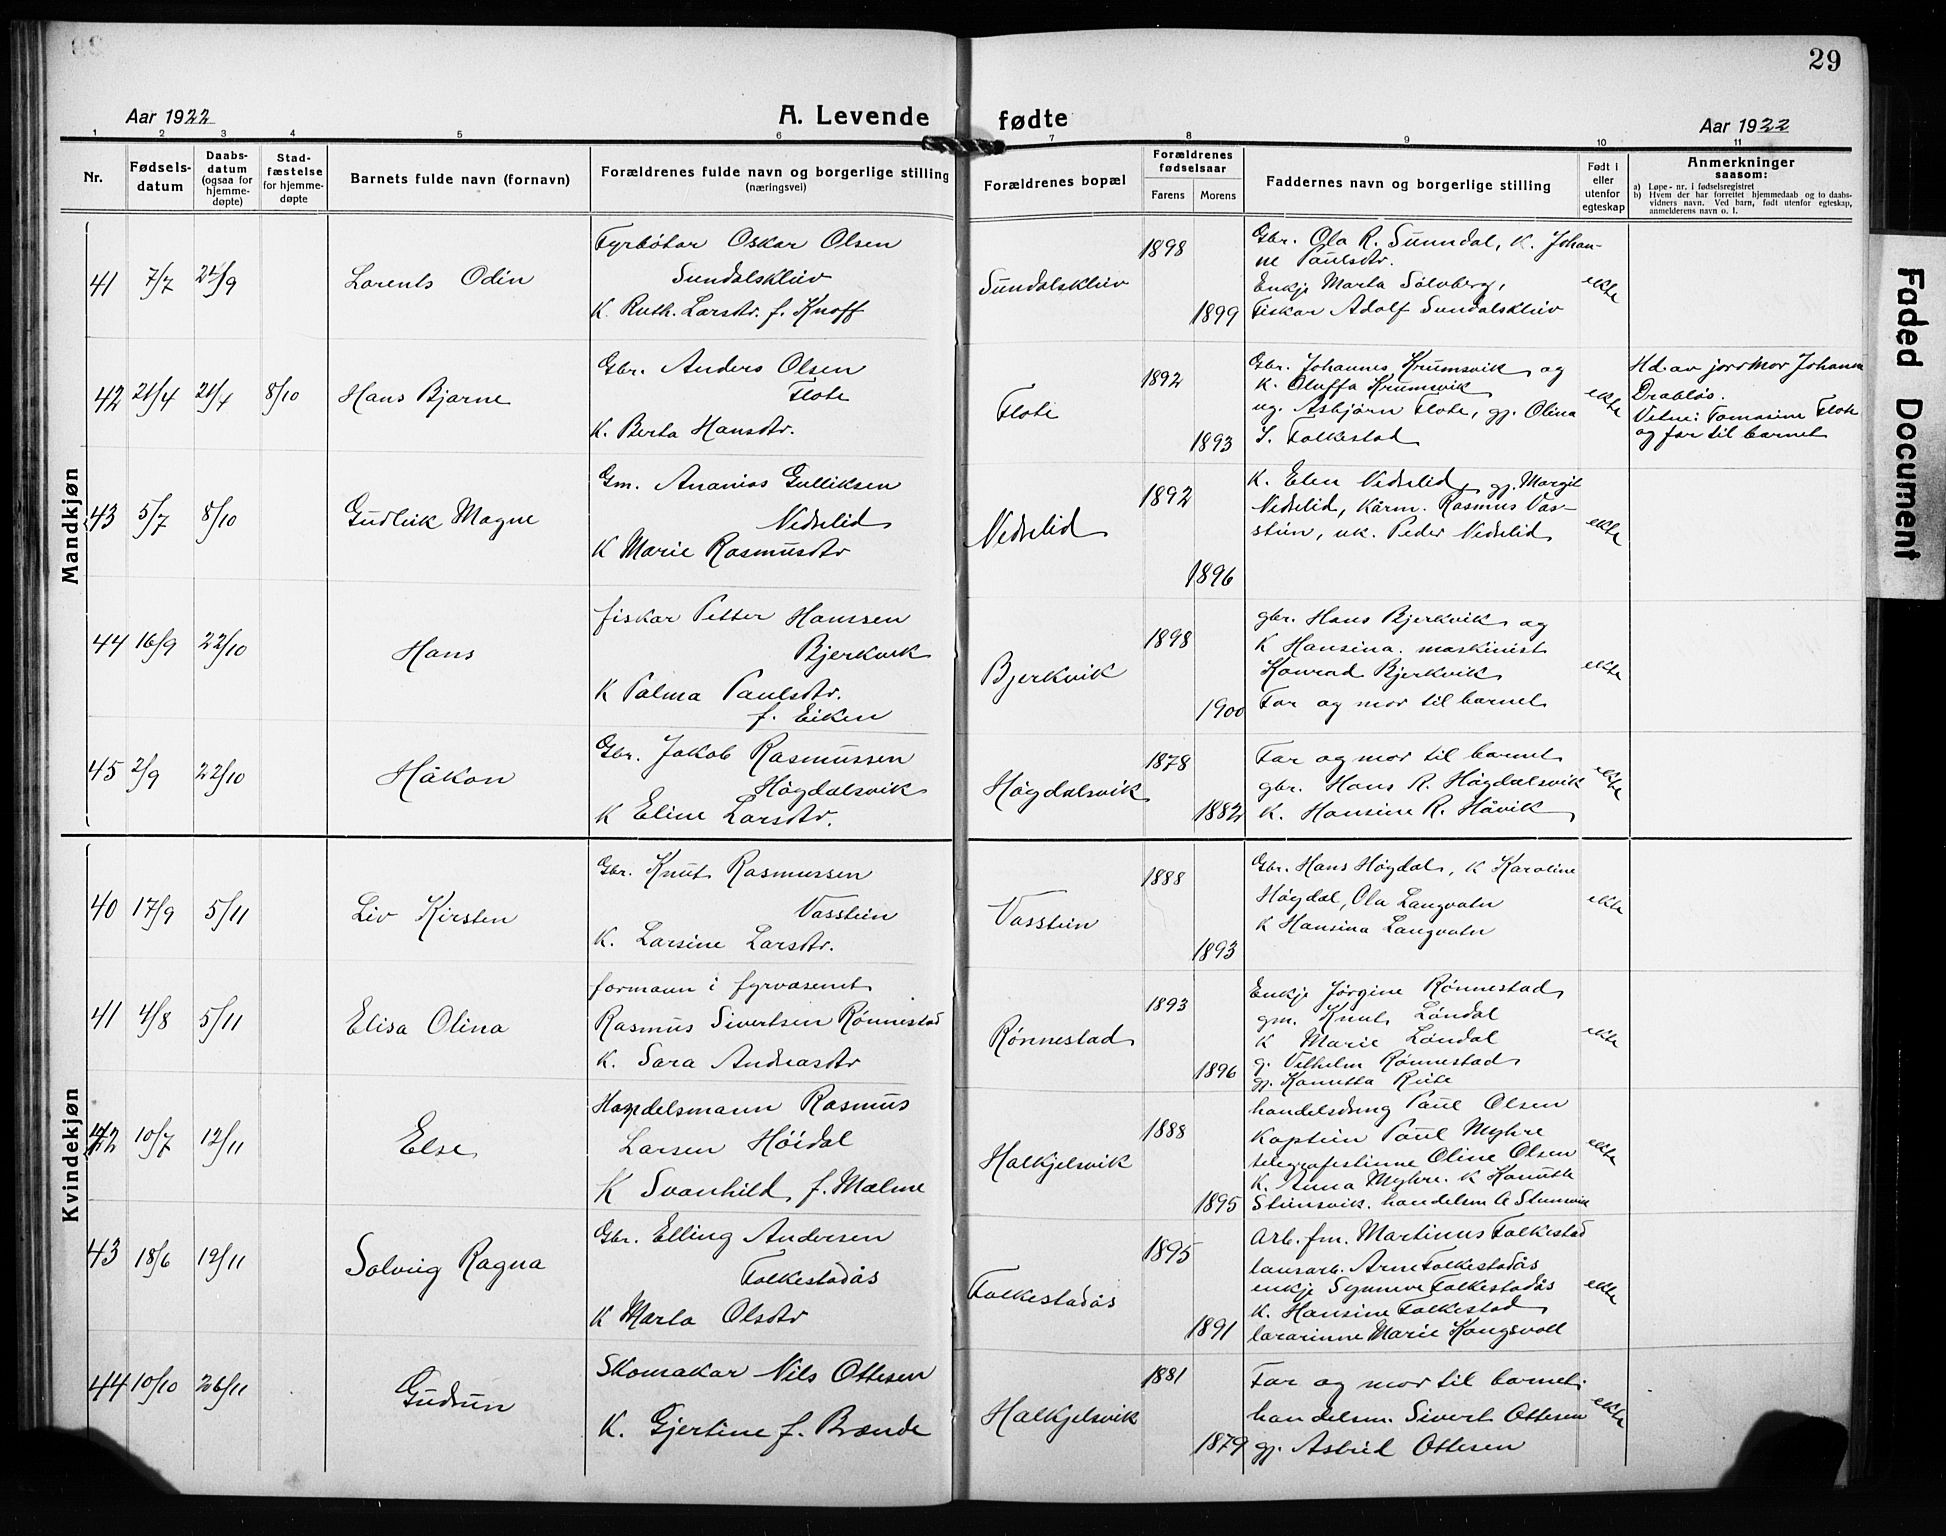 29
Aar 1922
A. Levende fødte
Aar 1922
1 2 3 4 5 6 7 8 9 10 11
Nr.
Fødsels-
datum
Daabs-
datum
(ogsaa for
hjemme-
døpte)
Stad-
fæstelse
for hjemme-
døpte
Barnets fulde navn (fornavn)
Forældrenes fulde navn og borgerlige stilling
(næringsvei)
Forældrenes bopæl
Forældrenes
fødselsaar
Farens Morens
Faddernes navn og borgerlige stilling
Født i
eller
utenfor
egteskap
Anmerkninger
saasom:
a) Løpe-nr. i fødselsregistret
b) Hvem der har forrettet hjemmedaab og to daabs-
vidners navn. Ved barn, født utenfor egteskap,
anmelderens navn o. l.
Faded Document
Mandkjøn
41 7/7 24/9
Lorents Odin
Fyrbøtar Oskar Olsen
Sundalskleiv
K. Ruth. Larsdtr. f. Knoff
Sundalskleiv
1898
1899
Gbr. Ola R. Sunndal, K. Johan-
ne Paulsdtr.
Enkje Marta Sølvberg,
Fiskar Adolf Sundalskleiv
ekte
42 21/4 21/4 8/10
Hans Bjarne
Gbr. Anders Olsen
Flote
K. Berta Hansdtr.
Flote
1892
1893
Gbr. Johannes Krumsvik og
K. Oluffa Krumsvik
ug. Asbjørn Flote, gj. Olina
I. Folkestad
ekte
Hd. av jormor Johanna
Drabløs.
Vitne: Tomasine Flote
og far til barnet
43 5/7 8/10
Gudleik Magne
Gm. Ananias Gulliksen
Nedrelid
K Marie Rasmusdtr
Nedrelid
1892
1896
K. Elen Nedrelid, gj. Margit
Nedrelid, Kårm. Rasmus Vas-
stein, uk. Peder Nedrelid
ekte
44 16/9 22/10
Hans
fiskar Petter Hanssen
Bjerkvik
K Palma Paulsdtr.
f. Eiken
Bjerkvik
1898
1900
gbr. Hans Bjerkvik og
K Hansina. maskinist
Konrad Bjerkvik
Far og mor til barnet
ekte
45 2/9 22/10
Håkon
Gbr. Jakob Rasmussen
Høgdalsvik
K Eline Larsdtr.
Høgdalsvik
1878
1882
Far og mor til barnet
gbr. Hans R. Høgdalsvik
K. Hansine R. Håvik
ekte
Kvindekjøn
40 17/9 5/11
Liv Kirsten
Gbr. Knut Rasmussen
Vasstein
K. Larsine Larsdtr.
Vasstein
1888
1893
Gbr. Hans Høgdal, K Karoline
Høgdal, Ola Langvatn
K Hansina Langvatn
ekte
41 4/8 5/11
Elisa Olina
formann i fyrvæsenet
Rasmus Sivertsen Rønnestad
K. Sara Andreasdtr
Rønnestad
1893
1896
Enkje Jørgine Rønnestad
gm. Knut Løndal
K Marie Løndal
g. Vilhelm Rønnestad
gj. Kanutta Reite
ekte
42 10/7 12/11
Else
Handelsmann Rasmus
Larsen Höidal
K Svanhild, f. Malme
Halkjelsvik
1888
1895
handelsdreng Paul Olsen
Kaptein Paul Myhre
telegrafistinne Oline Olsen
K. Anna Myhre. K Kanutte
Steinsvik. handelsm A Steinsvik
ekte
43 18/6 12/11
Solveig Ragna
Gbr. Elling Andersen
Folkestadås
K Marta Olsdtr
Folkestadås
1895
1891
Arb. fm. Martinus Folkestad
lausarb. Arne Folkestadås
enkje Synneve Folkestadås
K. Hansine Folkestad
lærarinne Marie Kongsvoll
ekte
44 10/10 26/11
Gudrun
Skomakar Nils Ottesen
K. Gjertine f. Brænde
Halkjelsvik
1881
1879
Far og mor til barnet.
handelsm. Sivert Ottesen
gj. Astrid Ottesen
ekte